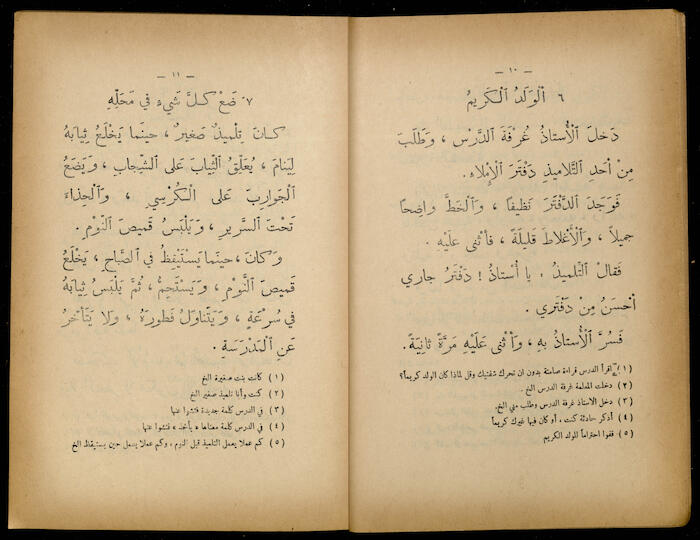 - ١٠ -
٦ اَلْوَلَدُ اَلْكَرِيمُ
دَخَلَ اَلْأُسْتَاذُ غُرْفَةَ اَلدَّرْسِ ، وَطَلَبَ
مِنْ اَحَدِ اَلتَّلَامِيذِ دَفْتَرَ اَلْإِمْلَاءِ.
فَوَجَدَ اَلدَّفْتَرَ نَظِيفًا ، وَاَلْخَطَّ وَاضِحًا
جَمِيلاً ، وَاَلْأَغْلَاطَ قَلِيلَةً ، فَأَثْنَى عَلَيْهِ .
فَقَالَ اَلتِّلْمِيذُ . يَا أُسْتَاذُ ! دَفْتَرُ جَارِي
اَحْسَنُ مِنْ دَفْتَرِي .
فَسُرَّ اَلْأُسْتَاذُ بِهِ ، وَأَثْنَى عَلَيْهِ مَرَّةً ثَانِيَةً .
(١) اقرأ الدرس قراءة صامتة بدون ان تحرك شفتيك وقل لماذا كان الولد كريماً؟
(٢) دخلت المعلمة غرفة الدرس الخ .
(٣) دخل الاستاذ غرفة الدرس وطلب مني الخ.
(٤) أذكر حادثة كنت ، أو كان فيها غيرك كريماً
(٥) قفوا احتراماً للولد الكريم
- ١١ -
٧- ضَعْ كُلَّ شَيْءٍ فِي مَحَلِّهِ
كَانَ تِلْمِيذٌ صَغِيرٌ ، حِينَمَا يَخْلَعُ ثِيَابَهُ
لِيَنَامَ ، يُعَلِّقُ اَلثِّيَابَ عَلَى اَلشِّجَابِ ، وَيَضَعُ
اَلْجَوَارِبَ عَلَى اَلْكُرْسِيِّ ، وَاَلْحِذَاءَ
تَحْتَ اَلسَّرِيرِ ، وَيَلْبَسُ قَمِيصَ اَلنَّوْمِ .
وَكَانَ ، حِينَمَا يَسْتَيْقِظُ فِي اَلصَّبَاحِ ، يَخْلَعُ
قَمِيصَ اَلنَّوْمِ ، وَيَسْتَحِمُّ ، ثُمَّ يَلْبَسُ ثِيَابَهُ
فِي سُرْعَةٍ ، وَيَتَنَاوَلُ فَطُورَهُ ، وَلَا يَتَأَخَّرُ
عَنِ اَلْمَدْرَسَةِ .
(١) كانت بنت صغيرة الخ
(٢) كنت وأنا تلميذ صغير الخ
(٣) في الدرس كلمة جديدة فتشوا عنها
(٤) في الدرس كلمة معناها « يأخذ » فتشوا عنها
(٥) كم عملا يعمل التلميذ قبل النوم ، وكم عملا يعمل حين يستيقظ الخ